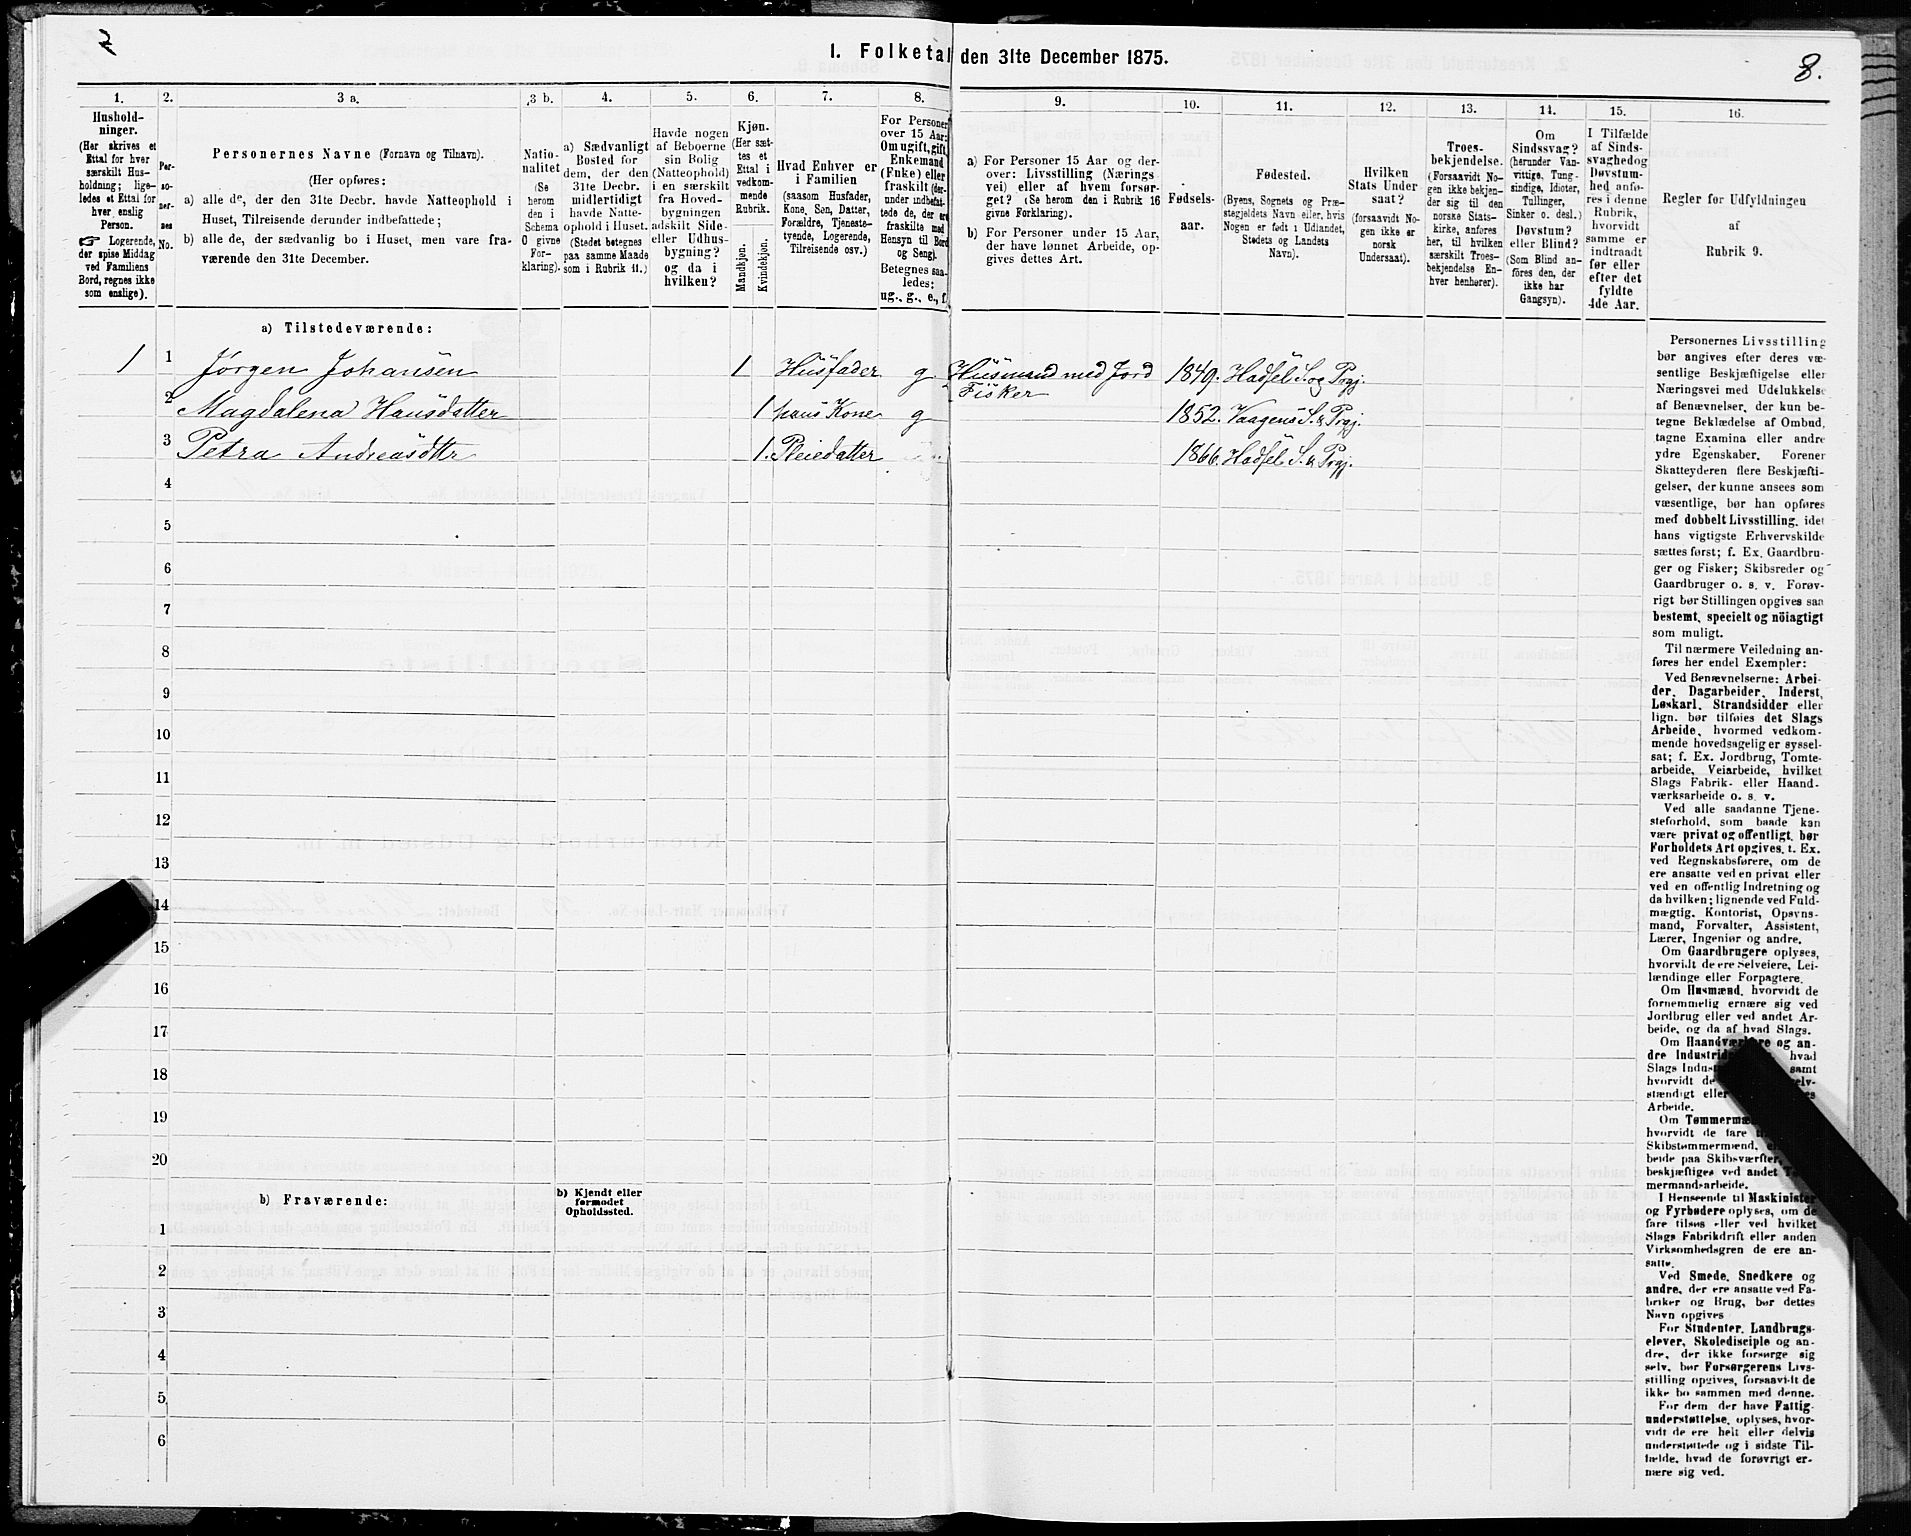 2
8.
1. Folketal den 31te December 1875.
1.
Hushold-
ninger.
(Her skrives et
Ettal for hver
særskilt Hus-
holdning; lige-
ledes et Ettal for
hver enslig
Person.
☞ Logerende,
der spise Middag
ved Familiens
Bord, regnes ikke
som enslige).
2.
Per-
so-
ner-
nes
No.
3 a.
Personernes Navne (Fornavn og Tilnavn).
(Her opføres:
a) alle de, der den 31te Decbr. havde Natteophold i
Huset, Tilreisende derunder indbefattede;
b) alle de, der sædvanlig bo i Huset, men vare fra-
værende den 31te December.
3 b.
Natio-
nalitet
(Se
herom
den i
Schema
O givne
For-
klaring).
4.
a) Sædvanligt
Bosted for
dem, der den
31te Decbr.
midlertidigt
havde Natte-
ophold i Huset.
(Stedet betegnes
paa samme Maade
som i Rubrik 11.)
5.
Havde nogen
af Beboerne
sin Bolig
(Natteophold)
i en særskilt
fra Hoved-
bygningen
adskilt Side-
eller Udhus-
bygning?
og da i
hvilken?
6.
Kjøn.
(Her sæt-
tes et
Ettal i
vedkom-
mende
Rubrik.
Mandkjøn.
Kvindekjøn.
7.
Hvad Enhver er
i Familien
(saasom Husfader,
Kone, Søn, Datter,
Forældre, Tjeneste-
tyende, Logerende,
Tilreisende osv.)
8.
For Personer
over 15 Aar:
Om ugift, gift,
Enkemand
(Enke) eller
fraskilt (der-
under indbefat-
tede de, der ere
fraskilte med
Hensyn til Bord
og Seng).
Betegnes saa-
ledes:
ug., g., e., f.
9.
a) For Personer 15 Aar og der-
over: Livsstilling (Nærings-
vei) eller af hvem forsør-
get? (Se herom den i Rubrik 16
givne Forklaring).
b) For Personer under 15 Aar,
der have lønnet Arbeide, op-
gives dettes Art.
10.
Fødsels-
aar.
11.
Fødested.
(Byens, Sognets og Præ-
stegjeldets Navn eller, hvis
Nogen er født i Udlandet,
Stedets og Landets
Navn).
12.
Hvilken
Stats Under-
saat?
(forsaavidt No-
gen ikke er
norsk
Undersaat).
13.
Troes-
bekjendelse.
(Forsaavidt No-
gen ikke bekjen-
der sig til den
norske Stats-
kirke, anføres
her, til hvilken
særskilt Troes-
bekjendelse En-
hver henhører).
14.
Om
Sindssvag?
(herunder Van-
vittige, Tung-
sindige, Idioter,
Tullinger,
Sinker o. desl.)
Døvstum?
eller Blind?
(Som Blind an-
føres den, der
ikke har
Gangsyn).
15.
I Tilfælde
af Sinds-
svaghed og
Døvstum-
hed anfø-
res i denne
Rubrik,
hvorvidt
samme er
indtraadt
før eller
efter det
fyldte
4de Aar.
16.
Regler for Udfyldningen
af
Rubrik 9.
a) Tilstedeværende:
1 1 Jørgen Johansen 1 Husfader g Husmand med Jord 1849. Hadsel S. og Prgj.
Fisker
2 Magdalena Hansdatter 1 hans Kone g 1852. Vaagens S. & Prgj.
3 Petra Andreasdttr 1. Pleiedatter 1866. Hadsel S. & Prgj.
4
5
6
7
8
9
10
11
12
13
14
15
16
17
18
19
20
b) Fraværende:
b) Kjendt eller
formodet
Opholdssted.
1
2
3
4
5
6
Personernes Livsstilling
bør angives efter deres væ-
sentlige Beskjæftigelse eller
Næringsvei med Udelukkelse
af Benævnelser, der kun be-
tegne Beklædelse af Ombud,
tagne Examina eller andre
ydre Egenskaber. Forener
Skatteyderen flere Beskjæfti-
gelser, der kunne ansees som
væsentlige, bør han opføres
med dobbelt Livsstilling, idet
hans vigtigste Erhvervskilde
sættes først; f. Ex. Gaardbru-
ger og Fisker; Skibsreder og
Gaardbruger o. s. v. Forøv-
rigt bør Stillingen opgives saa
bestemt, specielt og nöiagtigt
som muligt.
Til nærmere Veiledning an-
føres her endel Exempler:
Ved Benævnelserne: Arbei-
der, Dagarbeider, Inderst,
Løskarl, Strandsidder eller
lign. bør tilføies det Slags
Arbeide, hvormed vedkom-
mende hovedsagelig er syssel-
sat; f. Ex. Jordbrug, Tomte-
arbeide, Veiarbeide, hvilket
Slags Fabrik- eller Haand-
værksarbeide o. s. v.
Ved alle saadanne Tjene-
steforhold, som baade kan
være privat og offentligt, bør
Forholdets Art opgives, f. Ex.
ved Regnskabsførere, om de
ere ansatte ved en privat eller
ved en offentlig Indretning og
da hvilken; lignende ved Fuld-
mægtig, Kontorist, Opsyns-
mand, Forvalter, Assistent,
Lærer, Ingeniør og andre.
Om Gaardbrugere oplyses,
hvorvidt de ere Selveiere, Lei-
lændinge eller Forpagtere.
Om Husmænd, hvorvidt de
fornemmelig ernære sig ved
Jordbrug eller ved andet Ar-
beide, og da af hvad Slags.
Om Haandværkere og an-
dre Industrid hvad
Slags Indus samt
hvorvidt de selv-
stændigt eller
Arbeide.
Om Tømmermæ
hvorvidt de fare
Skibstømmermænd, el
beide paa Skibsværfter,
beskjæftiges ved andet T
mermandsarbeide.
I Henseende til Maskinister
og Fyrbødere oplyses, om de
fare tilsøs eller ved hvilket
Slags Fabrikdrift eller anden
Virksomhedsgren de ere an-
satte.
Ved Smede, Snedkere og
andre, der ere ansatte ved Fa-
briker og Brug, bør dettes
Navn opgives
For Studenter, Landbrugs-
elever, Skoledisciple og an-
dre, der ikke forsørge sig
selv, bør Forsørgerens Livs-
stilling opgives, forsaavidt de
ikke bo sammen med denne.
For dem der have Fattig-
understøttelse, oplyses, hvor-
vidt de ere helt eller delvis
understøttede og i sidste Til-
fælde, hvad de forøvrigt er-
nære sig ved.